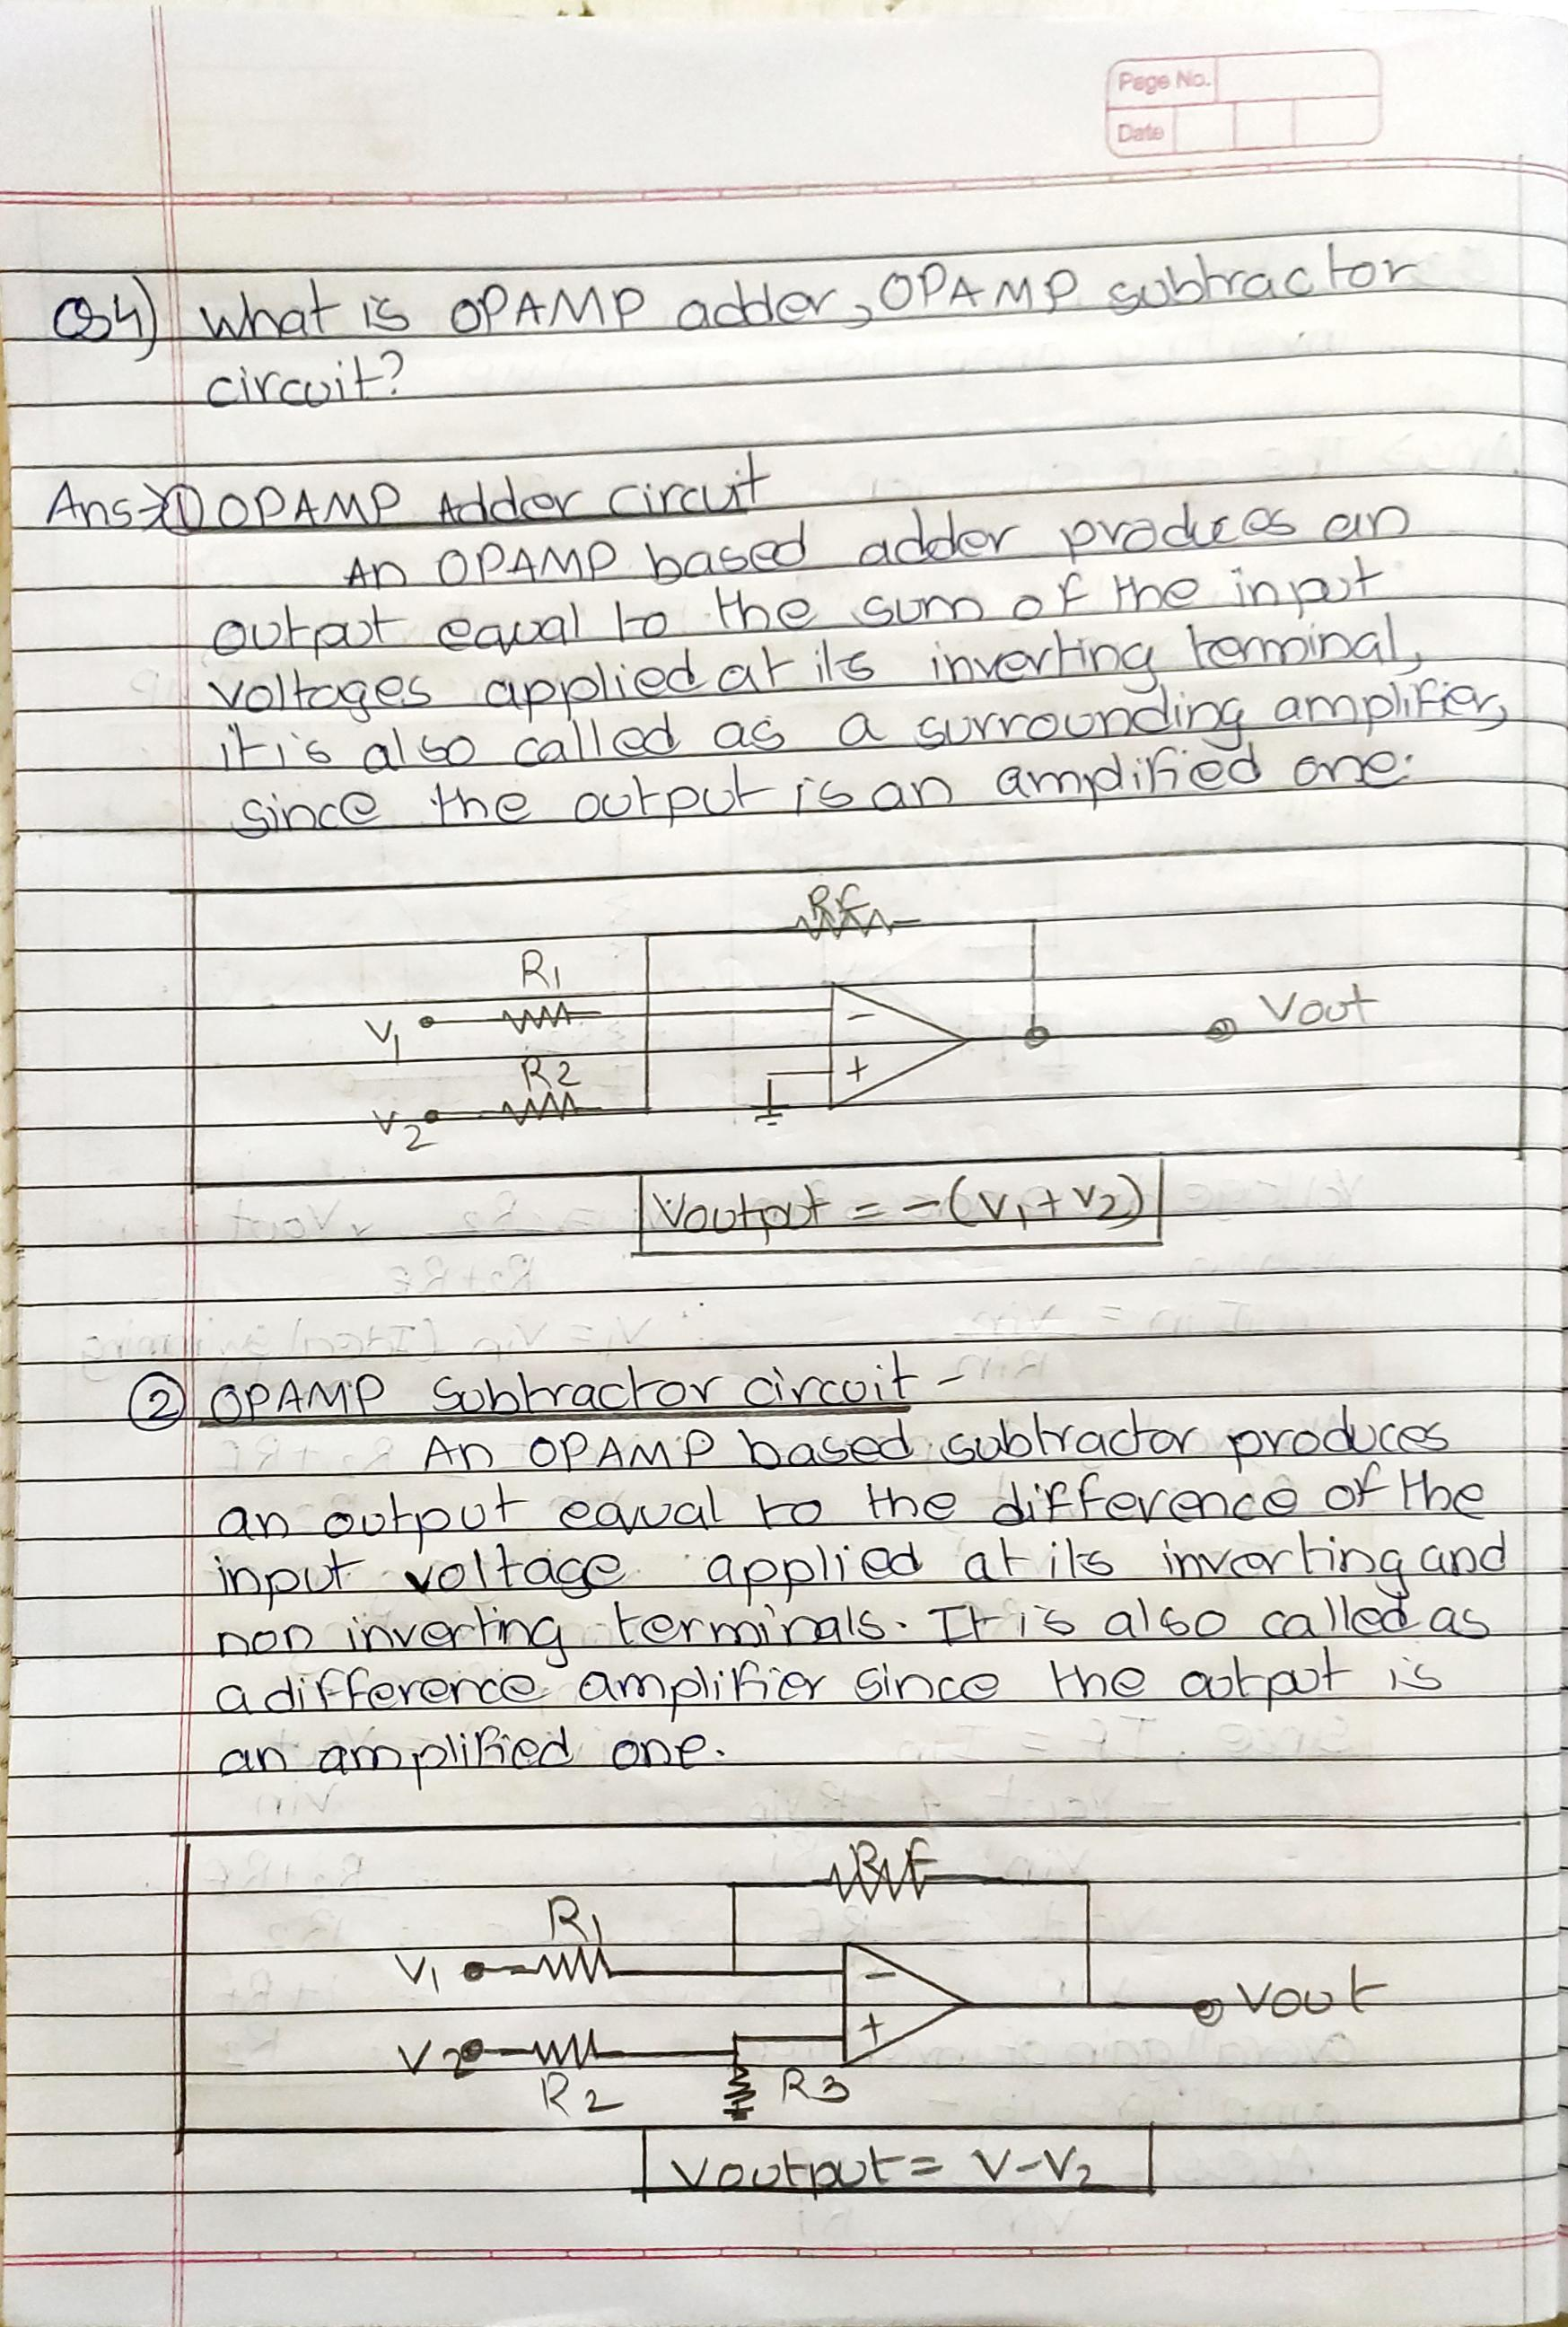 Page No.
Date
Q4) What is OPAMP adder, OPAMP subtractor
circuit?
Ans→① OPAMP Adder circuit
An OPAMP based adder produces an
output equal to the sum of the input
voltages applied at its inverting terminal,
it is also called as a surrounding amplifier,
since the output is an amplified one.
RF
R1
V1
Vout
-
R2
+
V2
Voutput = -(V1+V2)
② OPAMP Subtractor circuit -
An OPAMP based subtractor produces
an output equal to the difference of the
input voltage applied at its inverting and
non inverting terminals. It is also called as
a difference amplifier since the output is
an amplified one.
RF
R1
V1
-
Vout
+
V2
R2
R3
Voutput = V-V2